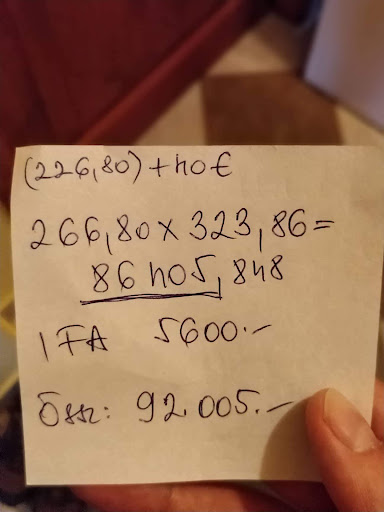 (226,80) + 40€
266,80 x 323,86 =
86405,848
IFA 5600.-
Össz: 92.005.-